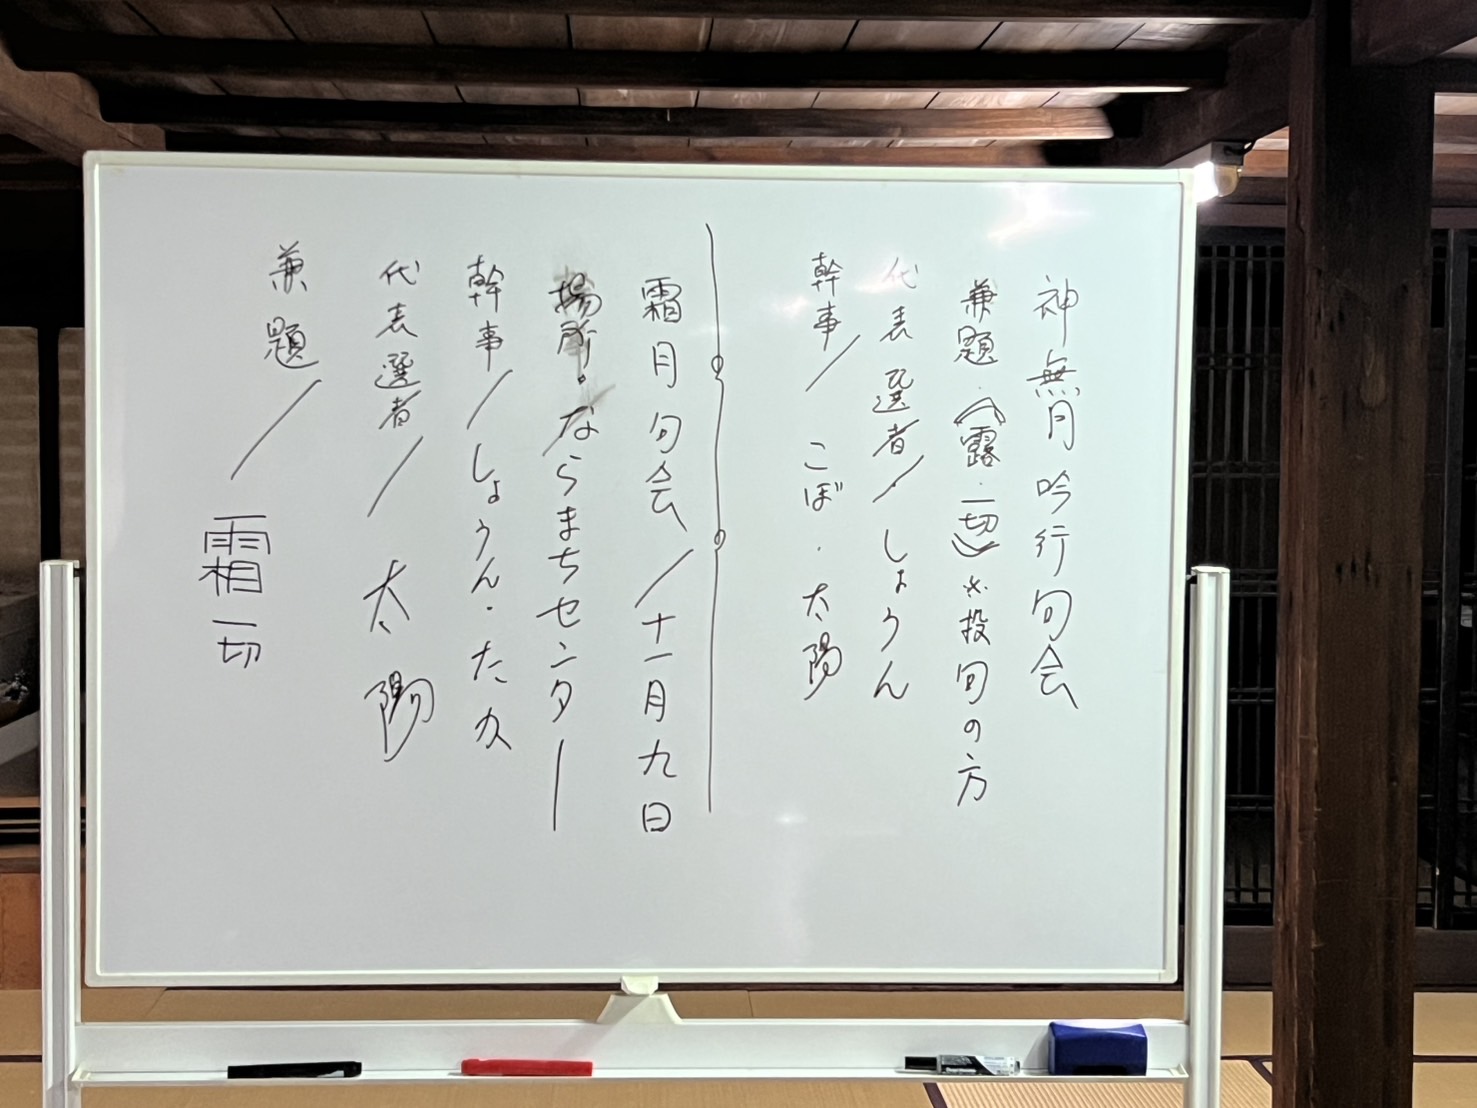 神無月吟行句会
兼題・《露一切》※投句の方
代表選者/しょうん
幹事/こぼ・太陽
霜月句会/十一月九日
場所・ならまちセンター
幹事/しょうん・たか
代表選者/太陽
兼題/霜一切